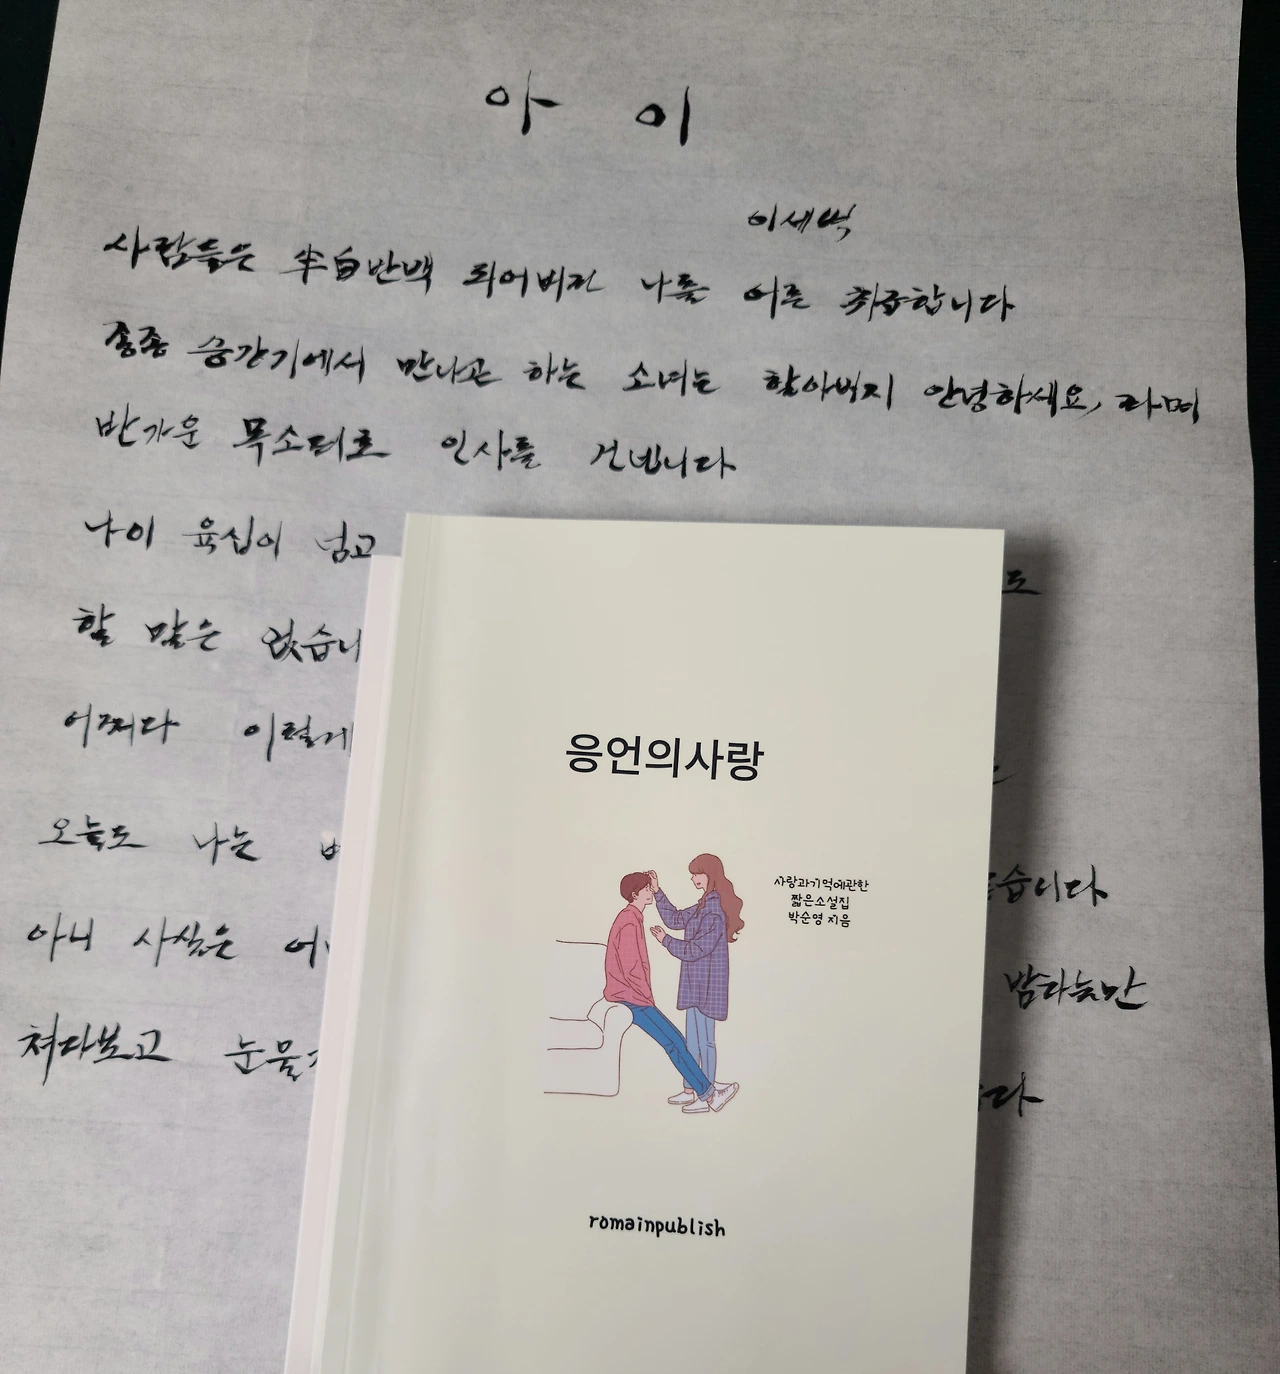 아 이
이세벽
사람들은 半白반백 되어버린 나를 어른 취급합니다
종종 승강기에서 만나곤 하는 소녀는 할아버지 안녕하세요, 라며
반가운 목소리로 인사를 건넵니다
나이 육십이 넘고
도
할 말은 없습니
어쩌다 이렇게
오늘도 나는
습니다
아니 사실은 어
밤하늘만
쳐다보고 눈물
다
응언의사랑
사랑과기억에관한
짧은소설집
박순영 지음
romainpublish